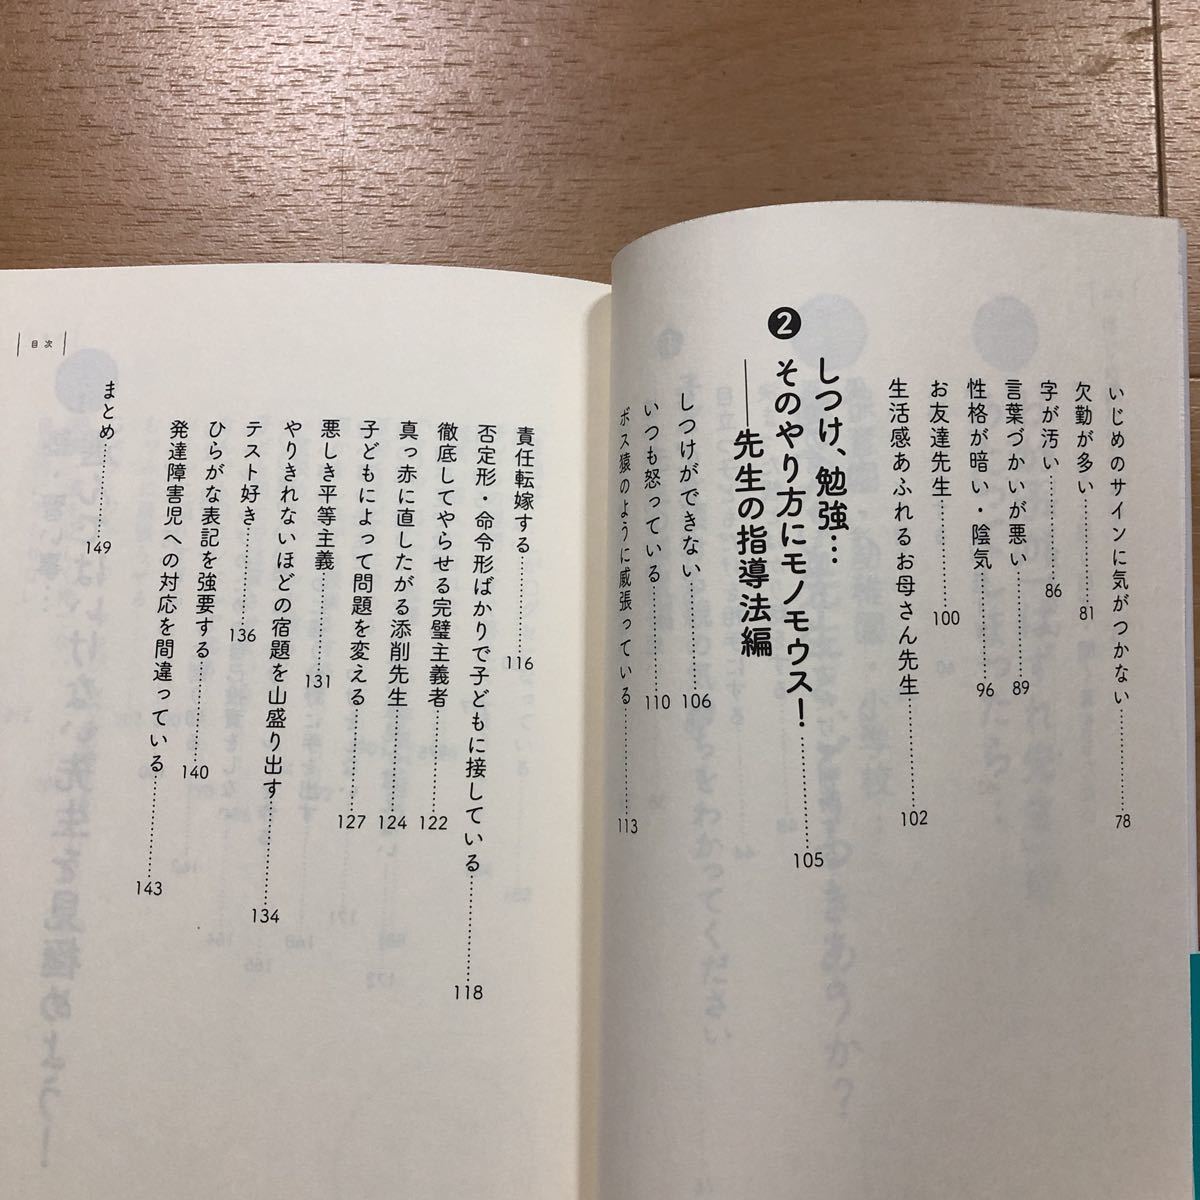 いじめのサインに気がつかない………78
欠勤が多い………81
字が汚い………86
言葉づかいが悪い………89
性格が暗い・陰気………96
お友達先生………100
生活感あふれるお母さん先生………102
❷ しつけ、勉強…
そのやり方にモノモウス!………105
――先生の指導法編
しつけができない………106
いつも怒っている………110
ボス猿のように威張っている………113
目次
責任転嫁する………116
否定形・命令形ばかりで子どもに接している………118
徹底してやらせる完璧主義者………122
真っ赤に直したがる添削先生………124
子どもによって問題を変える………127
悪しき平等主義………131
やりきれないほどの宿題を山盛り出す………134
テスト好き………136
ひらがな表記を強要する………140
発達障害児への対応を間違っている………143
まとめ………149